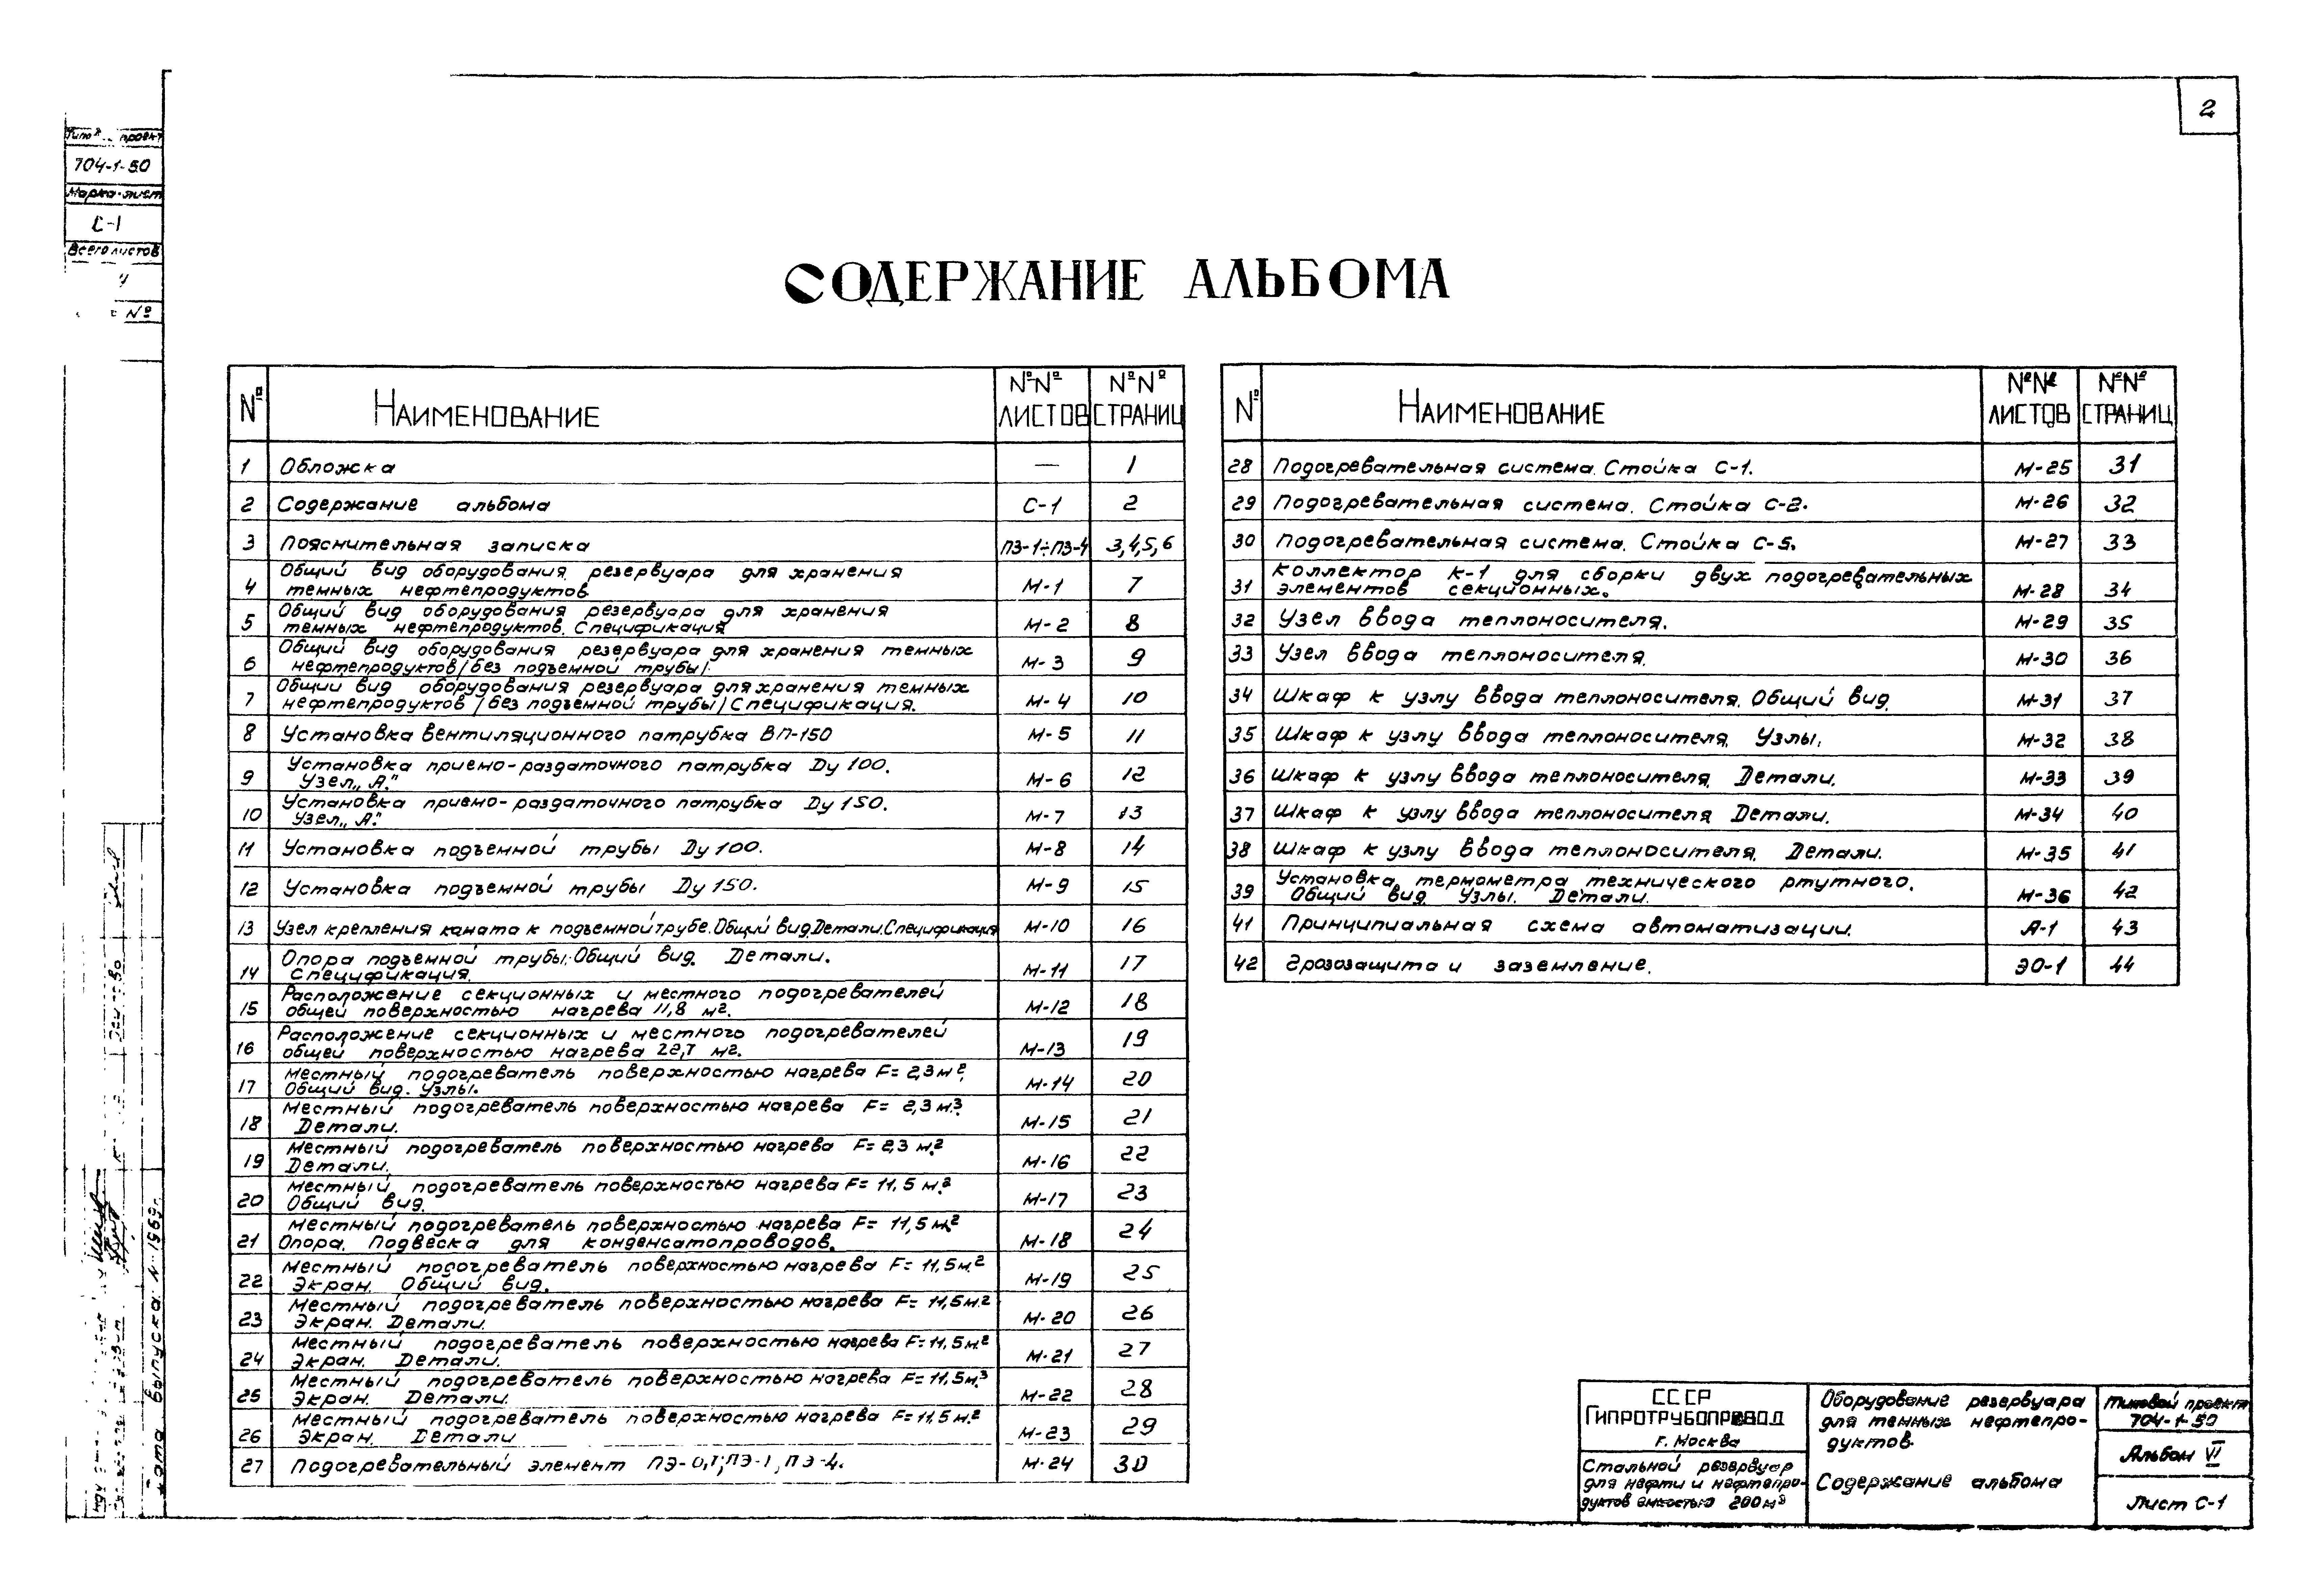 2
Типов. проект
704-1-50
Марка-лист
С-1
Всего листов
№
СОДЕРЖАНИЕ АЛЬБОМА
№ НАИМЕНОВАНИЕ №№ ЛИСТОВ №№ СТРАНИЦ
1 Обложка — 1
2 Содержание альбома С-1 2
3 Пояснительная записка ПЗ-1÷ПЗ-4 3,4,5,6
Общий вид оборудования резервуара для хранения
4 темных нефтепродуктов М-1 7
Общий вид оборудования резервуара для хранения
5 темных нефтепродуктов. Спецификация М-2 8
Общий вид оборудования резервуара для хранения темных
6 нефтепродуктов /без подъемной трубы/. М-3 9
Общий вид оборудования резервуара для хранения темных
7 нефтепродуктов /без подъемной трубы/ Спецификация. М-4 10
8 Установка вентиляционного патрубка ВП-150 М-5 11
Установка приемо-раздаточного патрубка Dу 100.
9 Узел „А." М-6 12
Установка приемо-раздаточного патрубка Dу 150.
10 Узел „А." М-7 13
11 Установка подъемной трубы Dу 100. М-8 14
12 Установка подъемной трубы Dу 150. М-9 15
13 Узел крепления каната к подъемной трубе. Общий вид. Детали. Спецификация М-10 16
Опора подъемной трубы. Общий вид. Детали.
14 Спецификация. М-11 17
Расположение секционных и местного подогревателей
15 общей поверхностью нагрева 11,8 м². М-12 18
Расположение секционных и местного подогревателей
16 общей поверхностью нагрева 22,7 м². М-13 19
Местный подогреватель поверхностью нагрева F= 2,3 м².
17 Общий вид. Узлы. М-14 20
Местный подогреватель поверхностью нагрева F= 2,3 м.³
18 Детали. М-15 21
Местный подогреватель поверхностью нагрева F= 2,3 м.²
19 Детали. М-16 22
Местный подогреватель поверхностью нагрева F= 11,5 м.²
20 Общий вид. М-17 23
Местный подогреватель поверхностью нагрева F= 11,5 м.²
21 Опора. Подвеска для конденсатопроводов. М-18 24
Местный подогреватель поверхностью нагрева F= 11,5 м.²
22 Экран. Общий вид. М-19 25
Местный подогреватель поверхностью нагрева F= 11,5 м.²
23 Экран. Детали. М-20 26
Местный подогреватель поверхностью нагрева F= 11,5 м.²
24 Экран. Детали. М-21 27
Местный подогреватель поверхностью нагрева F= 11,5 м.³
25 Экран. Детали. М-22 28
Местный подогреватель поверхностью нагрева F= 11,5 м.²
26 Экран. Детали М-23 29
27 Подогревательный элемент ПЭ-0,7; ПЭ-1, ПЭ-4. М-24 30
№ НАИМЕНОВАНИЕ №№ ЛИСТОВ №№ СТРАНИЦ
28 Подогревательная система. Стойка С-1. М-25 31
29 Подогревательная система. Стойка С-2. М-26 32
30 Подогревательная система. Стойка С-5. М-27 33
Коллектор К-1 для сборки двух подогревательных
31 элементов секционных. М-28 34
32 Узел ввода теплоносителя. М-29 35
33 Узел ввода теплоносителя. М-30 36
34 Шкаф к узлу ввода теплоносителя. Общий вид. М-31 37
35 Шкаф к узлу ввода теплоносителя. Узлы. М-32 38
36 Шкаф к узлу ввода теплоносителя. Детали. М-33 39
37 Шкаф к узлу ввода теплоносителя Детали. М-34 40
38 Шкаф к узлу ввода теплоносителя. Детали. М-35 41
Установка термометра технического ртутного.
39 Общий вид. Узлы. Детали. М-36 42
41 Принципиальная схема автоматизации. А-1 43
42 Грозозащита и заземление. ЭО-1 44
СССР
ГИПРОТРУБОПРОВОД
г. Москва
Стальной резервуар
для нефти и нефтепро-
дуктов емкостью 200 м³
Оборудование резервуара
для темных нефтепро-
дуктов.
Содержание альбома
Типовой проект
704-1-50
Альбом VI
Лист С-1
Дата выпуска: 1969 г.